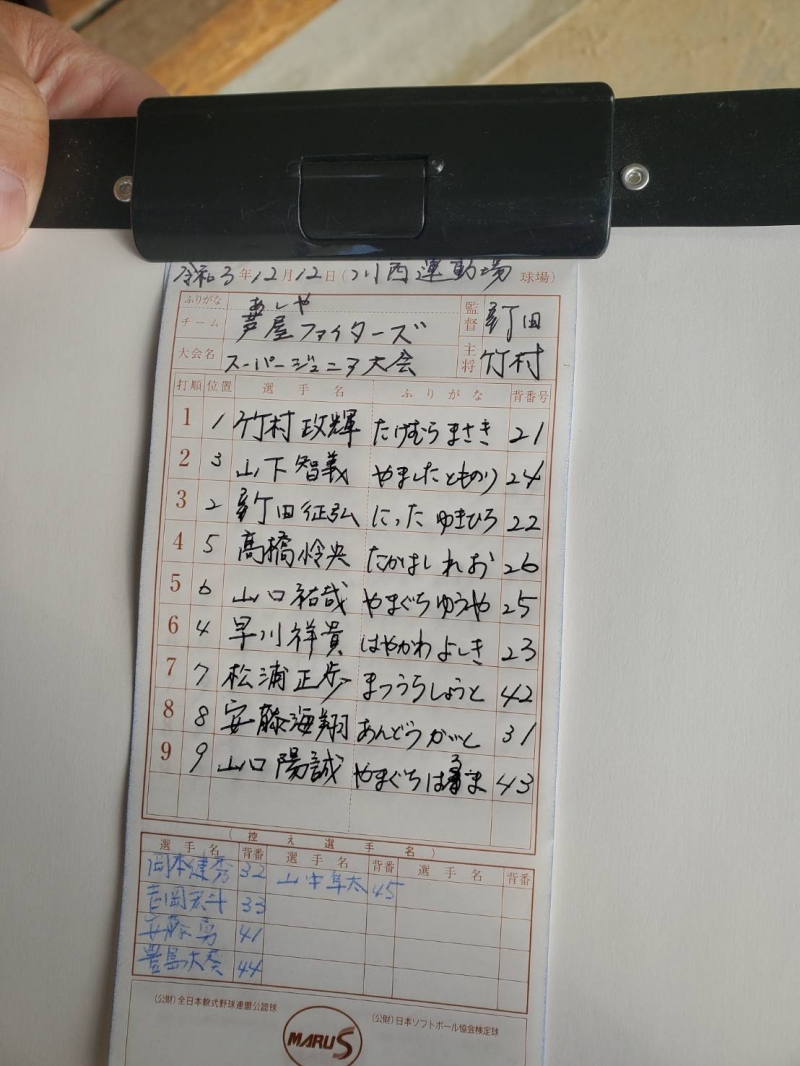 令和3年12月12日(川西運動場 球場)
ふりがな あしや 監督 新田
チーム 芦屋ファイターズ
大会名 スーパージュニア大会 主将 竹村
打順 位置 選手名 ふりがな 背番号
1 1 竹村政輝 たけむらまさき 21
2 3 山下智義 やましたとものり 24
3 2 新田征弘 にったゆきひろ 22
4 5 高橋怜央 たかはしれお 26
5 6 山口祐哉 やまぐちゆうや 25
6 4 早川祥貴 はやかわよしき 23
7 7 松浦正歩 まつうらしょうと 42
8 8 安藤海翔 あんどうかいと 31
9 9 山口陽誠 やまぐちはるま 43
(控え選手名)
選手名 背番 選手名 背番 選手名 背番
岡本健秀 32 山中隼太 45
吉岡 33
安藤勇 41
豊島大葵 44
(公財)全日本軟式野球連盟公認球
(公財)日本ソフトボール協会検定球
MARUS